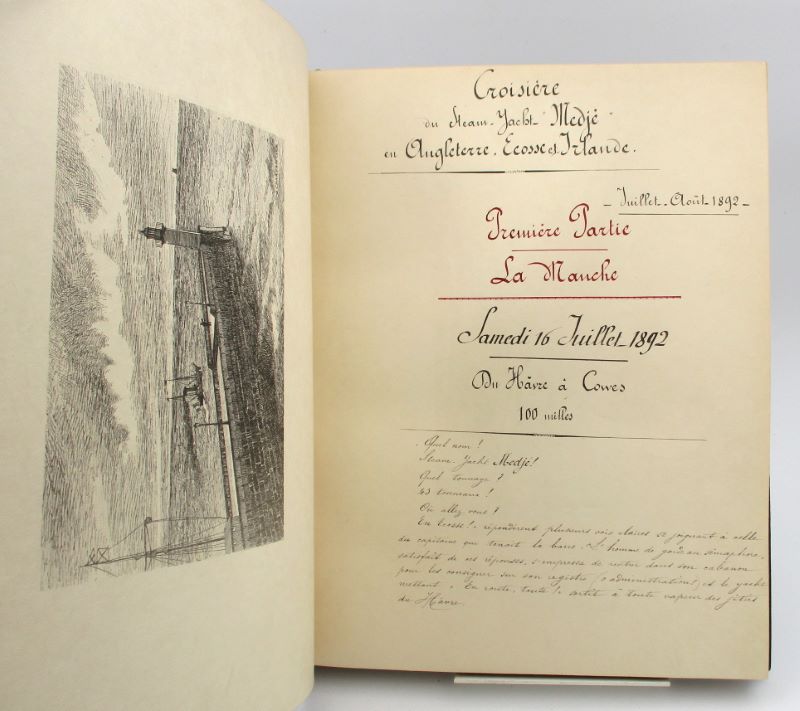 Croisière
du Steam-Yacht "Medjé"
en Angleterre. Ecosse et Irlande.
- Juillet - Août - 1892 -
Première Partie
La Manche
Samedi 16 Juillet - 1892
Du Hâvre à Cowes
100 milles
. Quel nom !
Steam-Yacht Medjé !
Quel tonnage ?
43 tonneaux !
Où allez vous ?
En Ecosse ! répondirent plusieurs voix claires se joignant à celle
du capitaine qui tenait la barre. L'homme de garde au sémaphore,
satisfait de ces réponses, s'empressa de rentrer dans son cabanon
pour les consigner sur son registre (ô administration !) et le yacht
mettant " En route, toute ! " sortit à toute vapeur des jetées
du Hâvre.